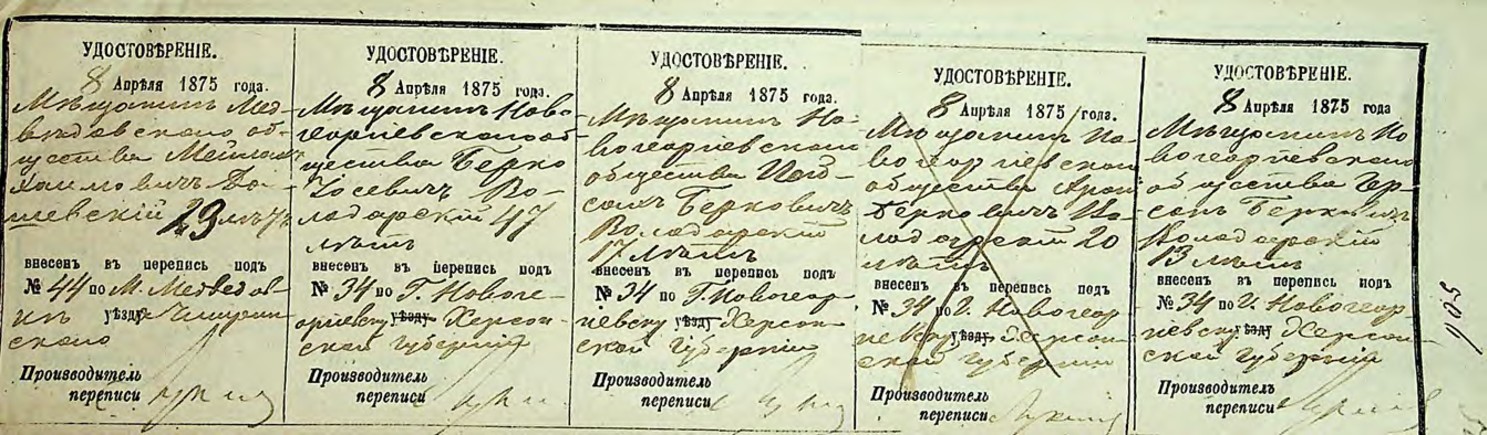 УДОСТОВѢРЕНІЕ.
8 Апрѣля 1875 года.
Мѣщанинъ Мед-
вѣдовскаго об-
щества
Хаимовичъ
29 лѣтъ
внесенъ въ перепись подъ
№ 44 по М. Медведов-
уѣзду
Производитель
переписи
УДОСТОВѢРЕНІЕ.
8 Апрѣля 1875 года.
Мѣщанинъ Ново
георгіевскаго об
щества Берко
Іосевичъ Во-
ладарскій 47
лѣтъ
внесенъ въ перепись подъ
№ 34 по Г. Новоге-
оргіевску уѣзду Херсон-
ской губерніи
Производитель
переписи
УДОСТОВѢРЕНІЕ.
8 Апрѣля 1875 года.
Мѣщанинъ Но-
вогеоргіевскаго
общества
Берковичъ
Воладарскій
17 лѣтъ
внесенъ въ перепись подъ
№ 34 по Г. Новогеор-
гіевску уѣзду Херсон-
ской губерніи
Производитель
переписи
УДОСТОВѢРЕНІЕ.
8 Апрѣля 1875 года.
Мѣщанинъ Но-
вогеоргіевскаго
общества Аронъ
Берковичъ Во-
ладарскій 20
лѣтъ
внесенъ въ перепись подъ
№ 34 по Г. Новогеор
гіевску уѣзду Херсон-
ской губерніи
Производитель
переписи
УДОСТОВѢРЕНІЕ.
8 Апрѣля 1875 года
Мѣщанинъ Но
вогеоргіевскаго
общества Гер-
сонъ Берковичъ
Воладарскій
13 лѣтъ
внесенъ въ перепись подъ
№ 34 по Г. Новогеор
гіевску уѣзду Херсон-
ской губерніи
Производитель
переписи